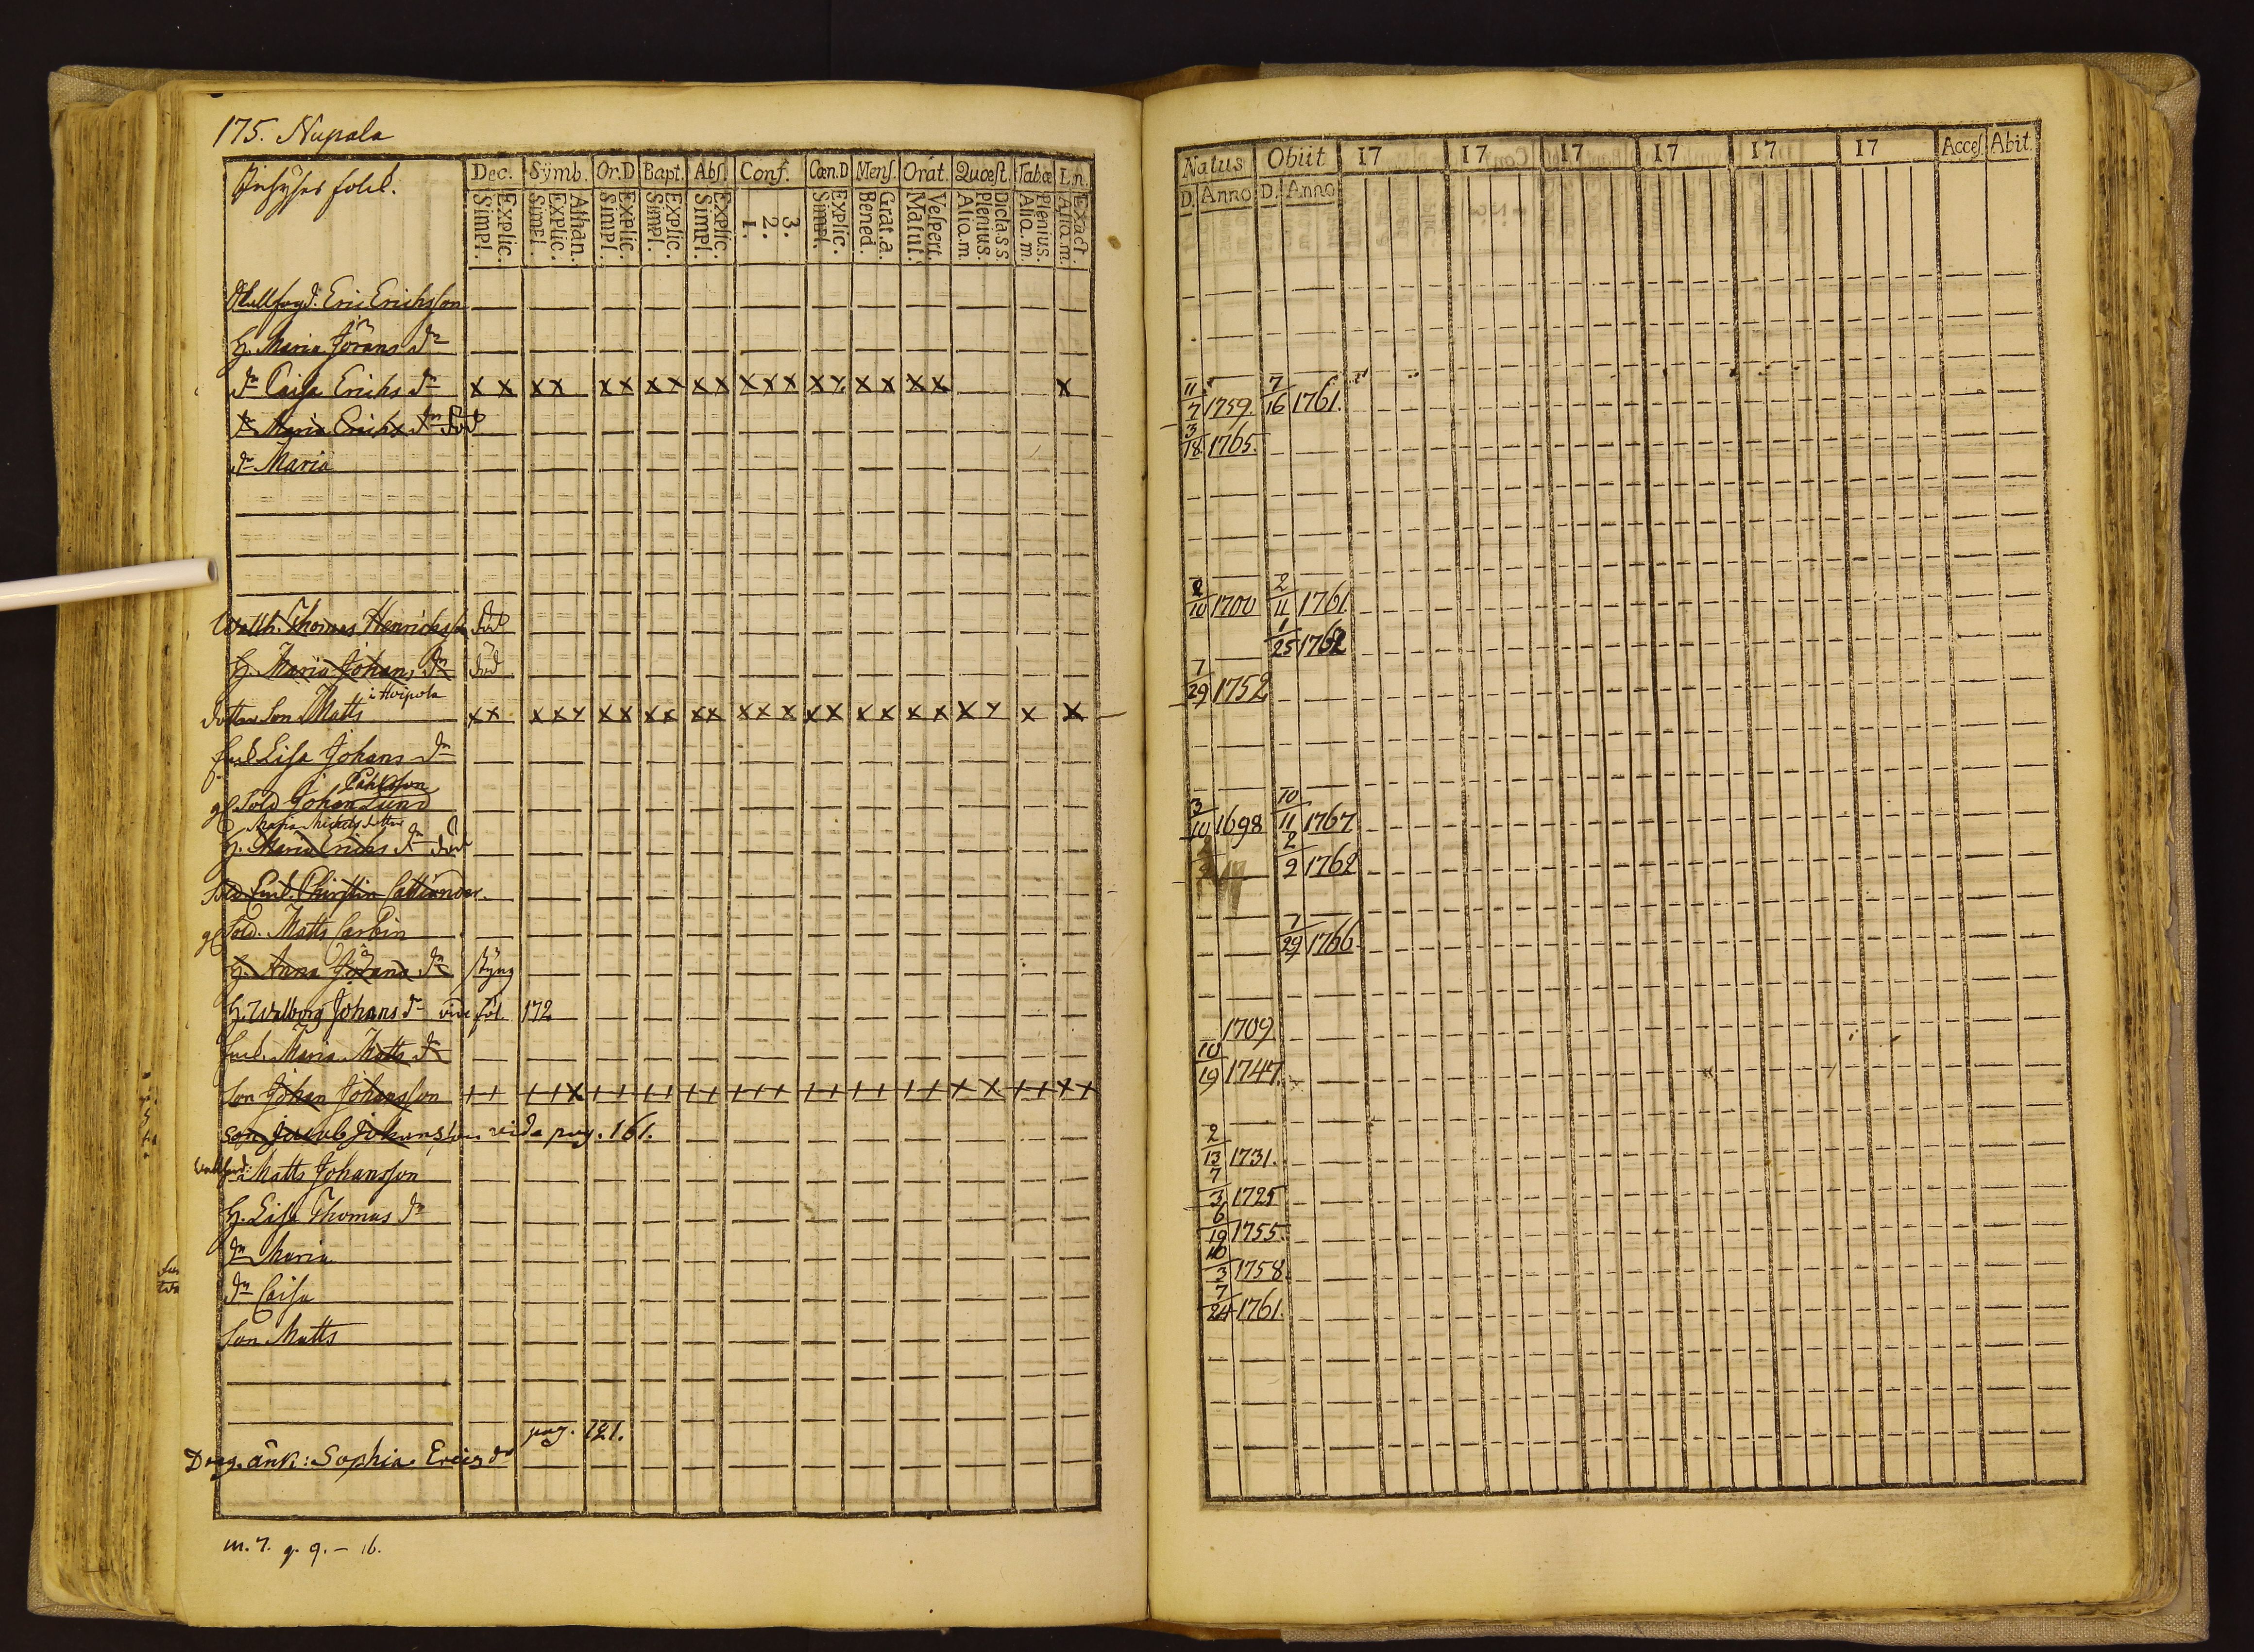 175. Nupala
Inhyses folck.
Dec. Symb. Or.D Bapt. Abſ. Conf. Cœn.D Menſ. Orat. Quœſt. Tabœ L.n.
Explic. Simpl. Athan. Explic. Simpl. Explic. Simpl. Explic. Simpl. Explic. Simpl. 3. 2. 1. Explic. Simpl. Grat.a. Bened. Veſpert. Matut. Dicla.s.s. Plenius. Aliq.m. Plenius. Aliq.m. Exact. Aliq.m.
Eric Erichsson
H. Maria Jörans dr
dr Caisa Erichs dr x x x x x x x x x x x x x x x x x x x x
dr Maria Erichs dr död
dr Maria
Wallh. Thomas Henrichsson död
H. Maria Johans dr död
i Hoipola
son Matts x x x x x x x x x x x x x x x x x x x x x x x x
Enk. Lisa Johans dr
Påhlsson
gl. Sold. Johan Lund
Maria Michelsdotter
H. Maria Erichs dr död
Sold. Enk. Christin
gl. Sold. Matts Corbin
H. Anna Jörans dr
H. Walborg Johans dr vide fol. 172
Enk. Maria Matts dr
Son Johan Johansson + + + + x + + + + + + + + + + + + + + x x + + x x
Son Jacob Johansson vide pag. 161.
Matts Johansson
H. Lisa Thomas dr
dr Maria
dr Caisa
Son Matts
pag. 121.
Drag. änk: Sophia Erics dr
m. 7. q. 9. – 16.
Natus Obiit 17 17 17 17 17 17 Acceſ. Abit.
D. Anno D. Anno
11/7 1759. 7/16 1761.
3/18 1765.
2/10 1700 2/11 1761
1/25 1762
7/29 1752
3/10 1698 10/11 1767
2/9 1762
1/29 1766.
1709
10/19 1747.
2/13 1731.
7/3 1725
6/19 1755.
10/3 1758.
7/24 1761.